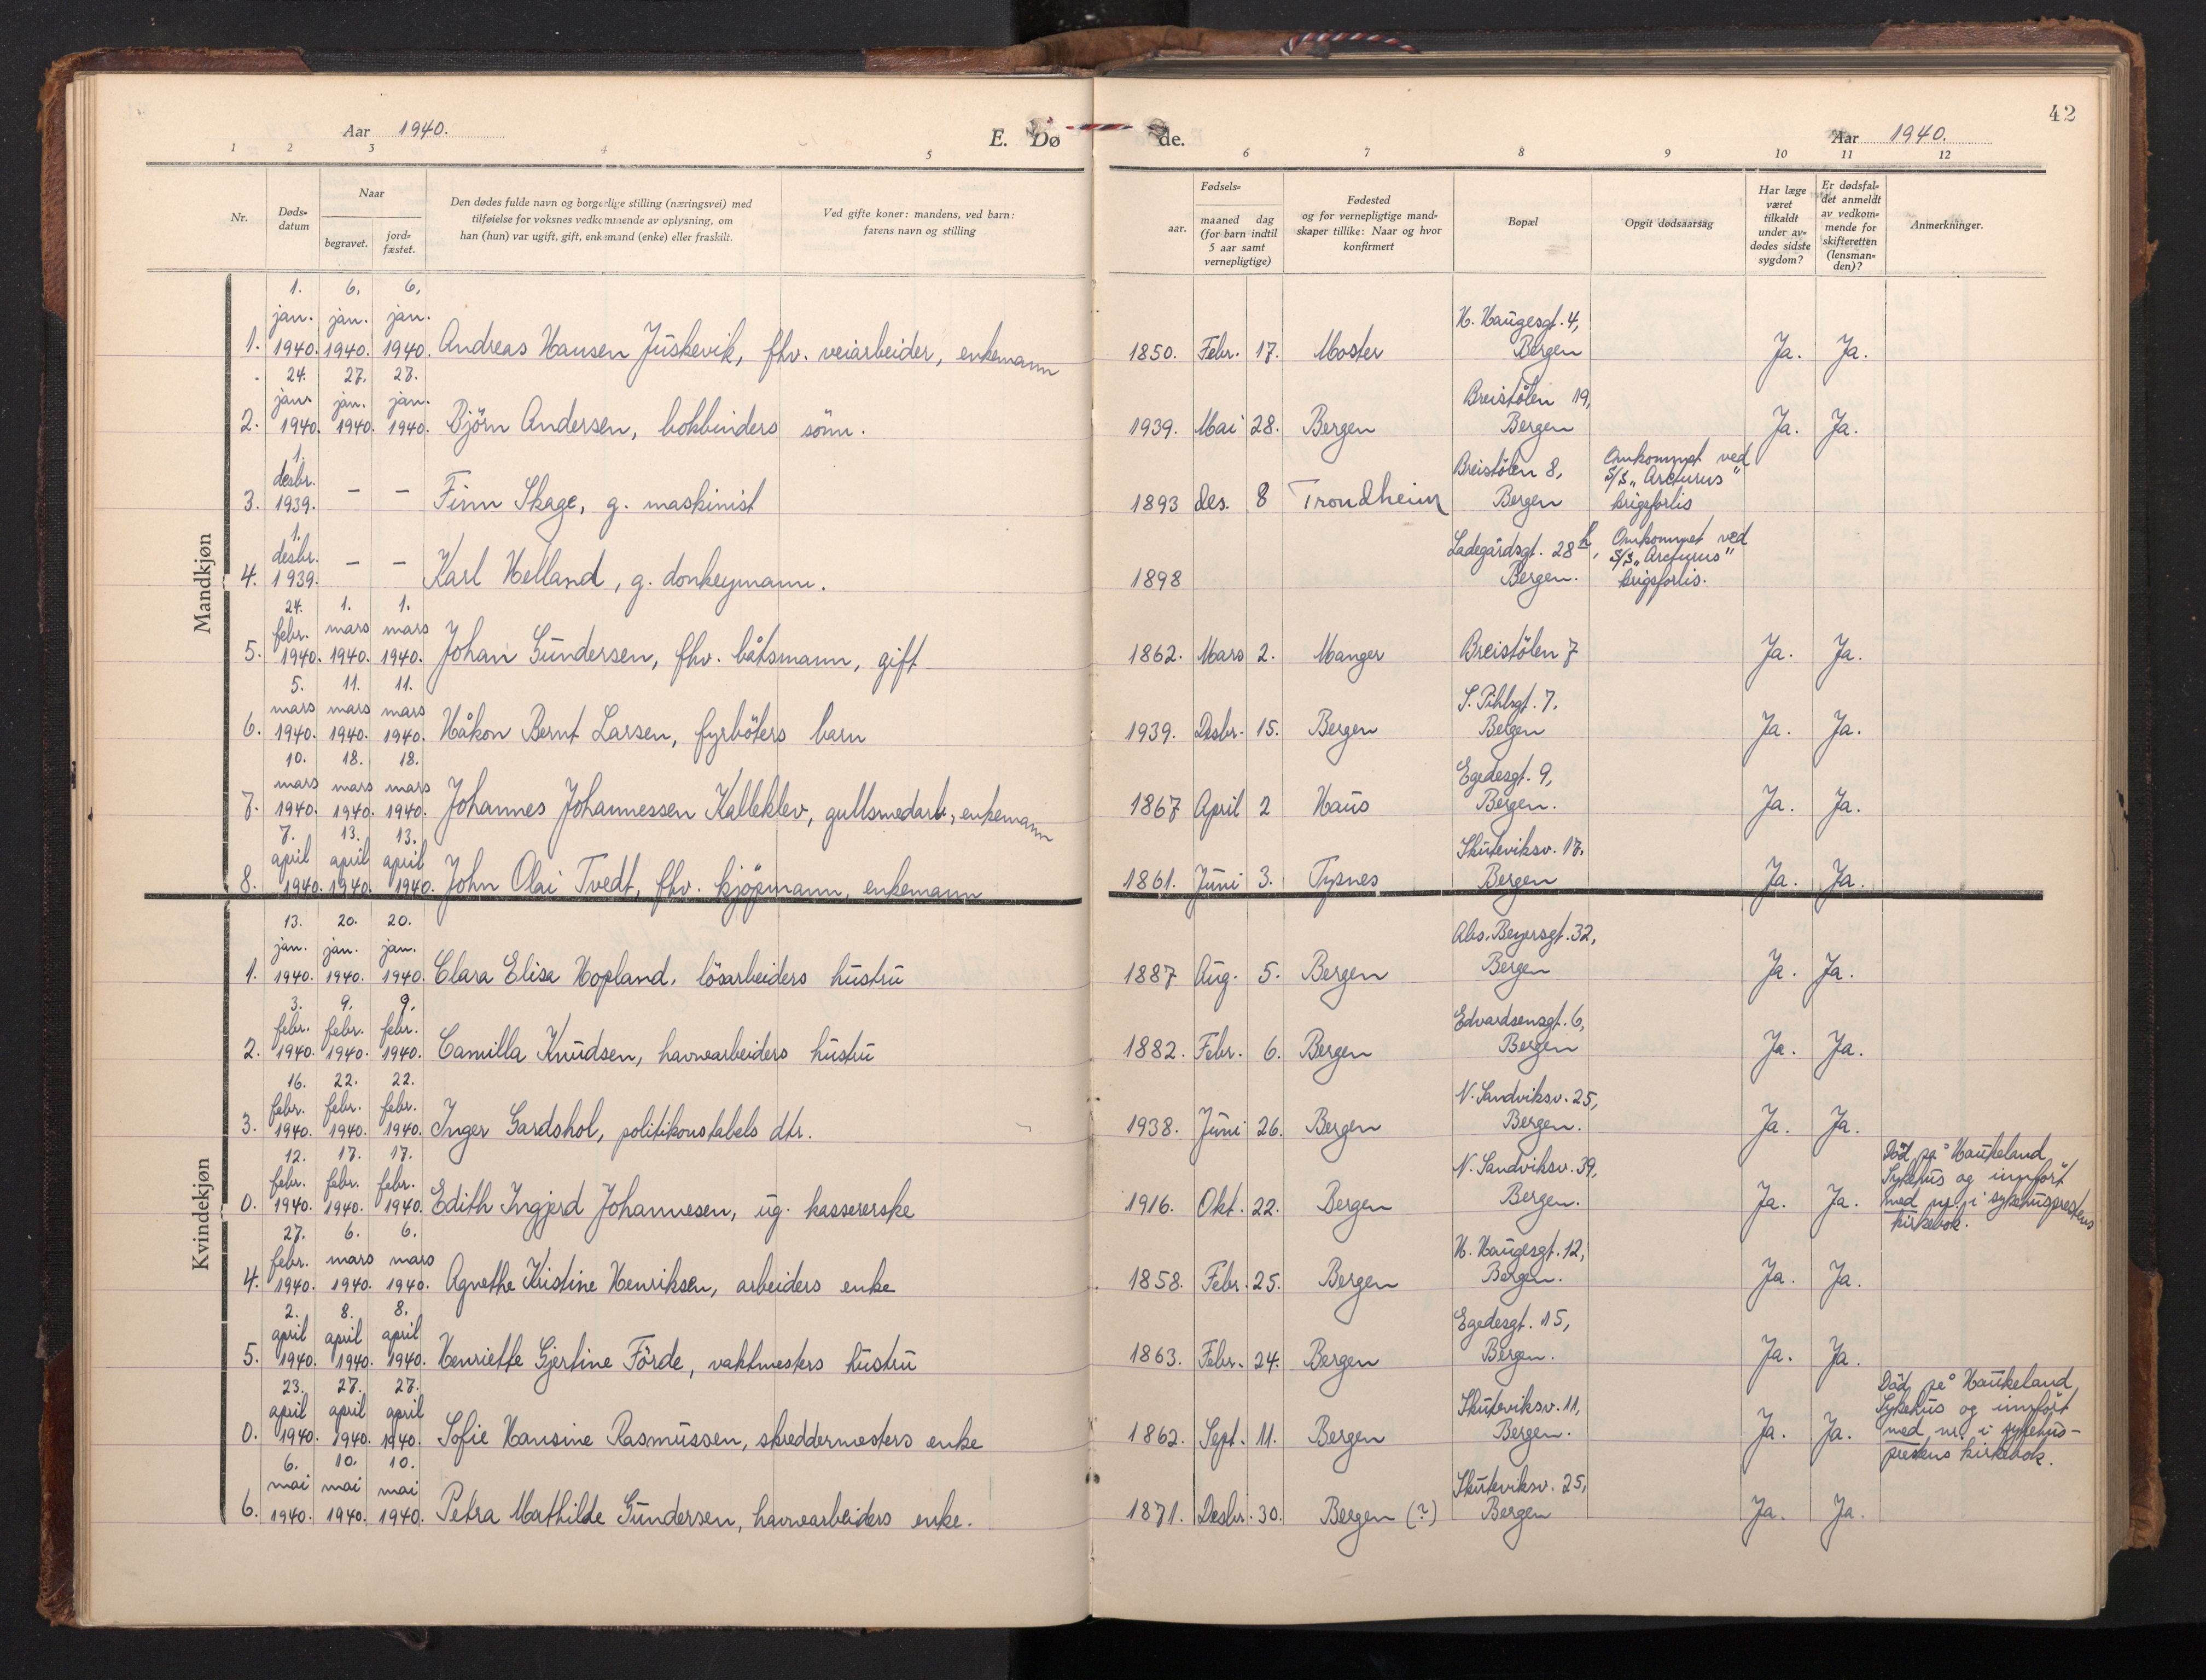 42
Aar 1940.
E. Dø
de.
Aar 1940.
1 2 3 4 5 6 7 8 9 10 11 12
Nr.
Døds-
datum
Naar
begravet.
jord-
fæstet.
Den dødes fulde navn og borgerlige stilling (næringsvei) med
tilføielse for voksnes vedkommende av oplysning, om
han (hun) var ugift, gift, enkemand (enke) eller fraskilt.
Ved gifte koner: mandens, ved barn:
farens navn og stilling
Fødsels-
aar.
maaned dag
(for barn indtil
5 aar samt
vernepligtige)
Fødested
og for vernepligtige mand-
skaper tillike: Naar og hvor
konfirmert
Bopæl
Opgit dødsaarsag
Har læge
været
tilkaldt
under av-
dødes sidste
sygdom?
Er dødsfal-
det anmeldt
av vedkom-
mende for
skifteretten
(lensman-
den)?
Anmerkninger.
Mandkjøn
1. 6. 6.
jan. jan. jan. H. Haugesgt. 4,
1. 1940. 1940. 1940. Andreas Hansen Juskevik, fhv. veiarbeider, enkemann 1850. Febr. 17. Moster Bergen Ja. Ja.
24. 27. 27.
jan. jan. jan. Breistölen 19,
2. 1940. 1940. 1940. Björn Andersen, bokbinders sönn. 1939. Mai 28. Bergen Bergen Ja. Ja.
1. Omkommet ved
desbr. Breistölen 8, S/S „Arcturus"
3. 1939. – – Finn Skage, g. maskinist 1893 des. 8 Trondheim Bergen krigsforlis
1. Omkommet ved
desbr. Ladegårdsgt. 28 b, S/S „Arcturus"
4. 1939. – – Karl Helland, g. donkeymann. 1898 Bergen. krigsforlis.
24. 1. 1.
febr. mars mars
5. 1940. 1940. 1940. Johan Gundersen, fhv. båtsmann, gift 1862. Mars 2. Manger Breistölen 7 Ja. Ja.
5. 11. 11.
mars mars mars S. Pihlsgt. 7.
6. 1940. 1940. 1940. Håkon Bernt Larsen, fyrböters barn 1939. Desbr. 15. Bergen Bergen Ja. Ja.
10. 18. 18.
mars mars mars Egedesgt. 9,
7. 1940. 1940. 1940. Johannes Johannessen Kalleklev, gullsmedarb., enkemann 1867 April 2 Haus Bergen. Ja. Ja.
7. 13. 13.
april april april Skuteviksv. 17.
8. 1940. 1940. 1940. John Olai Tvedt, fhv. kjöpmann, enkemann 1861. Juni 3. Tysnes Bergen Ja. Ja.
Kvindekjøn
13. 20. 20.
jan. jan. jan. Abs. Beyersgt. 32,
1. 1940. 1940. 1940. Clara Elisa Hopland, lösarbeiders hustru 1887 Aug. 5. Bergen Bergen Ja. Ja.
3. 9. 9.
febr. febr. febr. Edvardsensgt. 6,
2. 1940. 1940. 1940. Camilla Knudsen, havnearbeiders hustru 1882. Febr. 6. Bergen Bergen Ja. Ja.
16. 22. 22.
febr. febr. febr. N. Sandviksv. 25,
3. 1940. 1940. 1940. Inger Gardshol, politikonstabels dtr. 1938. Juni 26. Bergen Bergen. Ja. Ja.
12. 17. 17. Död på Haukeland
febr. febr. febr. N. Sandviksv. 39, Sykehus og innfört
0. 1940. 1940. 1940. Edith Ingjerd Johannesen, ug. kassererske 1916. Okt. 22. Bergen Bergen. Ja. Ja. med nr. i sykehusprestens
kirkebok.
27. 6. 6.
febr. mars mars H. Haugesgt. 12,
4. 1940. 1940. 1940. Agnethe Kristine Henriksen, arbeiders enke 1858. Febr. 25. Bergen Bergen. Ja. Ja.
2. 8. 8.
april april april Egedesgt. 15,
5. 1940. 1940. 1940. Henriette Gjertine Förde, vaktmesters hustru 1863. Febr. 24. Bergen Bergen. Ja. Ja.
23. 27. 27. Död på Haukeland
april april april Skuteviksv. 11, Sykehus og innfört
0. 1940. 1940. 1940. Sofie Hansine Rasmussen, skreddermesters enke 1862. Sept. 11. Bergen Bergen. Ja. Ja. med nr. i sykehus-
prestens kirkebok.
6. 10. 10.
mai mai mai Skuteviksv. 25,
6. 1940. 1940. 1940. Petra Mathilde Gundersen, havnearbeiders enke. 1871. Desbr. 30. Bergen (?) Bergen Ja. Ja.